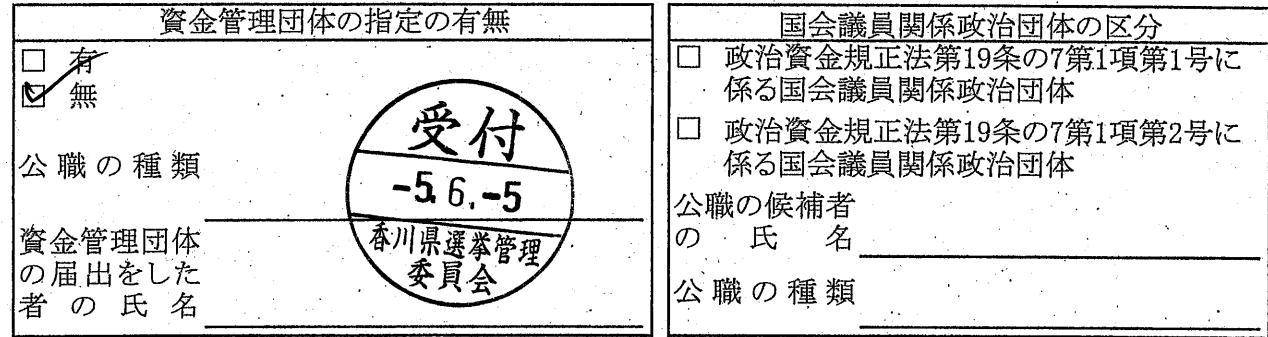 資金管理団体の指定の有無
□ 有
☑ 無
公職の種類
資金管理団体
の届出をした
者の氏名
受付
-5.6.-5
香川県選挙管理
委員会
国会議員関係政治団体の区分
□ 政治資金規正法第19条の7第1項第1号に
係る国会議員関係政治団体
□ 政治資金規正法第19条の7第1項第2号に
係る国会議員関係政治団体
公職の候補者
の氏名
公職の種類